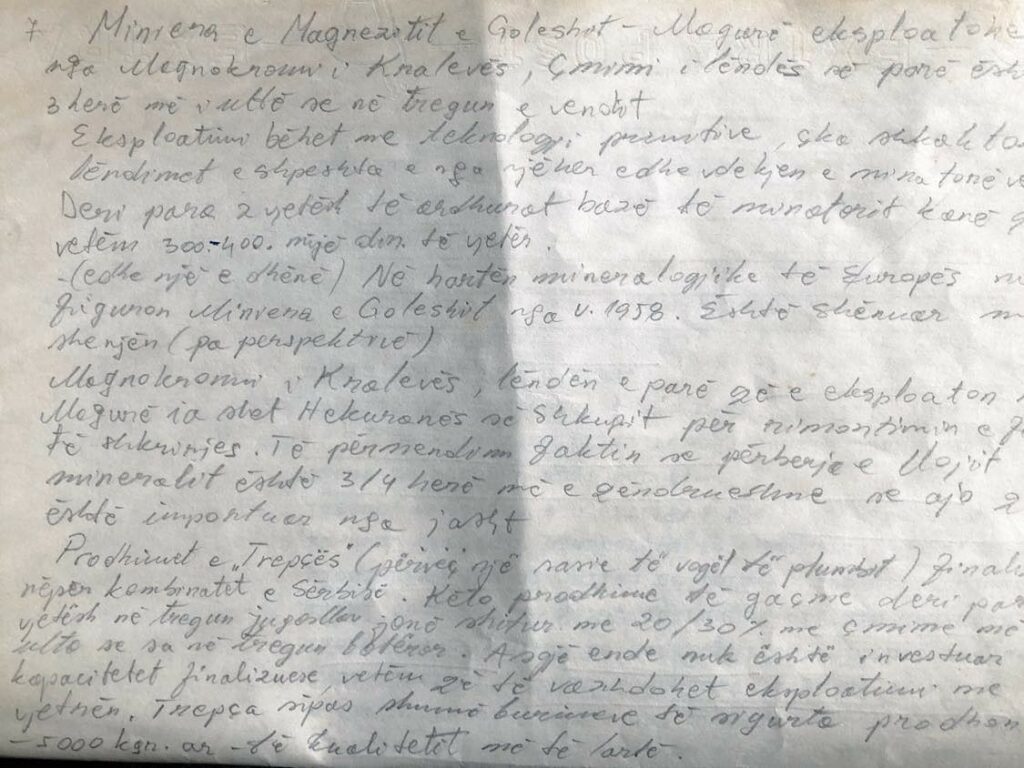 7 Miniera e Magnezitit e Goleshit - Magurë eksploatohe
nga Magnokromi i Kralevës, çmimi i lëndës së parë ësh
3 herë më i ultë se në tregun e vendit
Eksploatimi bëhet me teknologji primitive, çka shkakton
lëndimet e shpeshta e nga njëher edhe vdekjen e minatorëve
Deri para 2 vjetësh të ardhurat bazë të minatorit kanë q
vetëm 300-400. mijë din. të vjetër.
-(edhe një e dhënë) Në hartën mineralogjike të Europës nu
figuron Miniera e Goleshit nga v. 1958. Është shënuar m
shenjën (pa perspektivë)
Magnokromi i Kralevës, lëndën e parë që e eksploaton n
Magurë ia shet Hekuranës së Shkupit për rimontimin e f
të shkrirjes. Të përmendim faktin se përbërja e llojit
mineralit është 3/4 herë më e qëndrueshme se ajo q
është importuar nga jasht
Prodhimet e "Trepçës" (përveç një sasie të vogël të plumbit) finali
nëpër kombinatet e Sërbisë. Këto prodhime të gaçme deri par
vjetësh në tregun jugosllav janë shitur me 20/30% me çmime më
ulta se sa në tregun botëror. Asgjë ende nuk është investuar
kapacitetet finalizuese, vetëm që të vazhdohet eksploatimi me
vjetrën. Trepça sipas shumë burimeve të sigurta prodhon
-5000 kgr. ar - të kualitetit më të lartë.